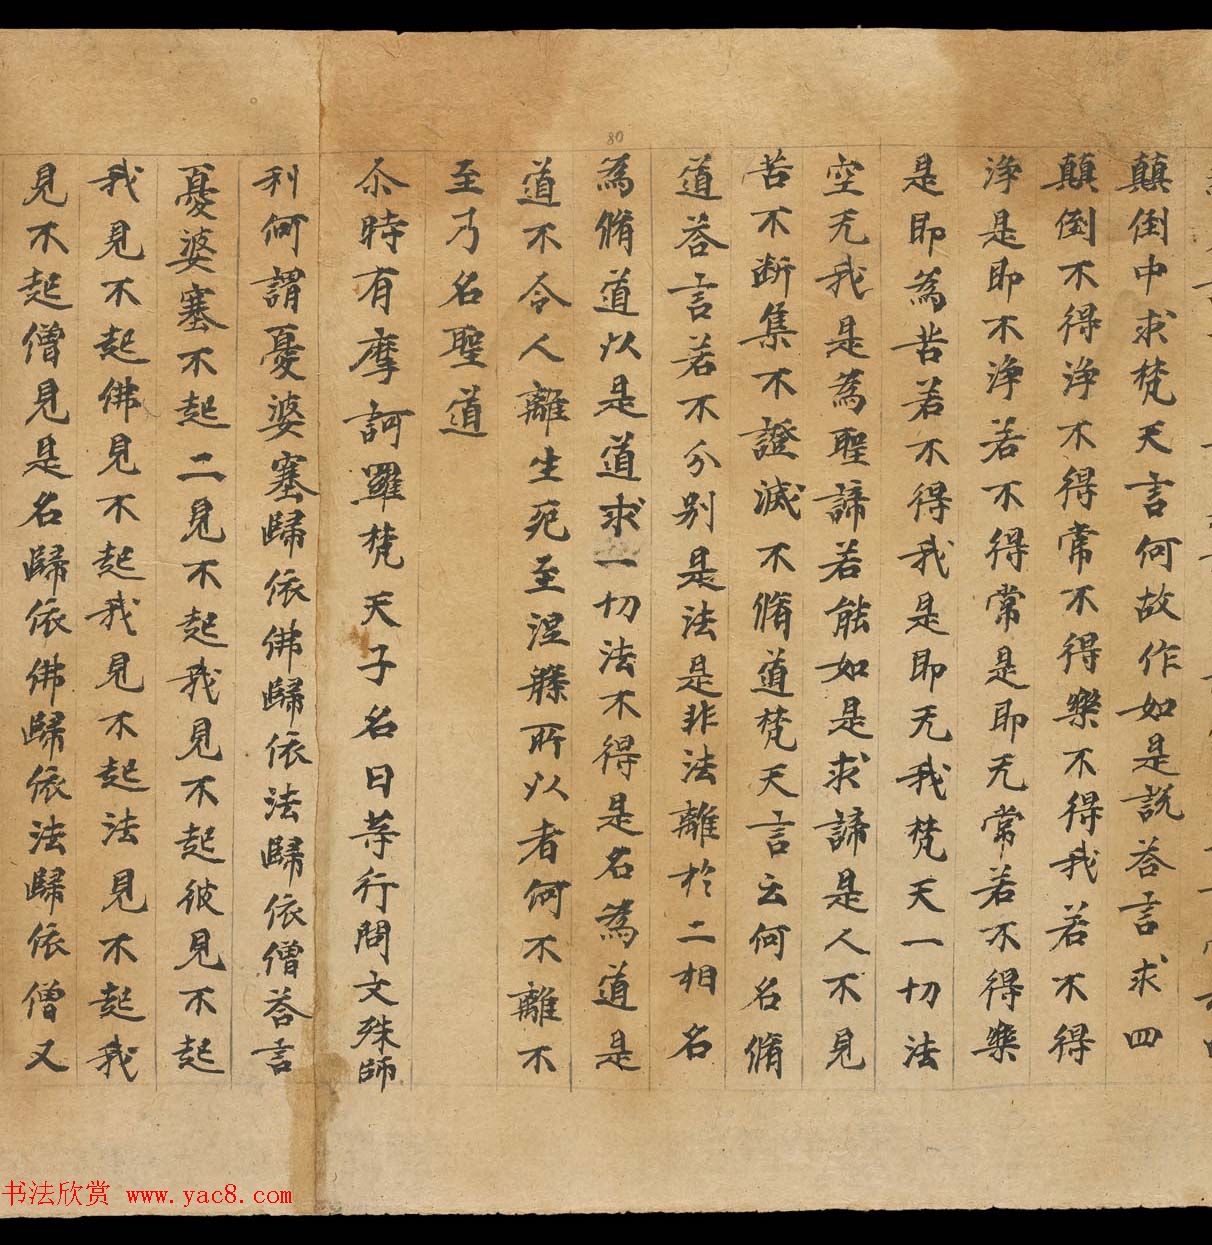 顛倒中求梵天言何故作如是說荅言求四
顛倒不得淨不得常不得樂不得我若不得
淨是即不淨若不得常是即无常若不得樂
是即為苦若不得我是即无我梵天一切法
空无我是為聖諦若能如是求諦是人不見
苦不断集不證滅不脩道梵天言云何名脩
道荅言若不分别是法是非法離於二相名
為脩道以是道求一切法不得是名為道是
道不令人離生死至涅槃所以者何不離不
至乃名聖道
尒時有摩訶羅梵天子名曰等行問文殊師
利何謂憂婆塞歸依佛歸依法歸依僧荅言
憂婆塞不起二見不起我見不起彼見不起
我見不起佛見不起我見不起法見不起我
見不起僧見是名歸依佛歸依法歸依僧又
80
书法欣赏 www.yac8.com